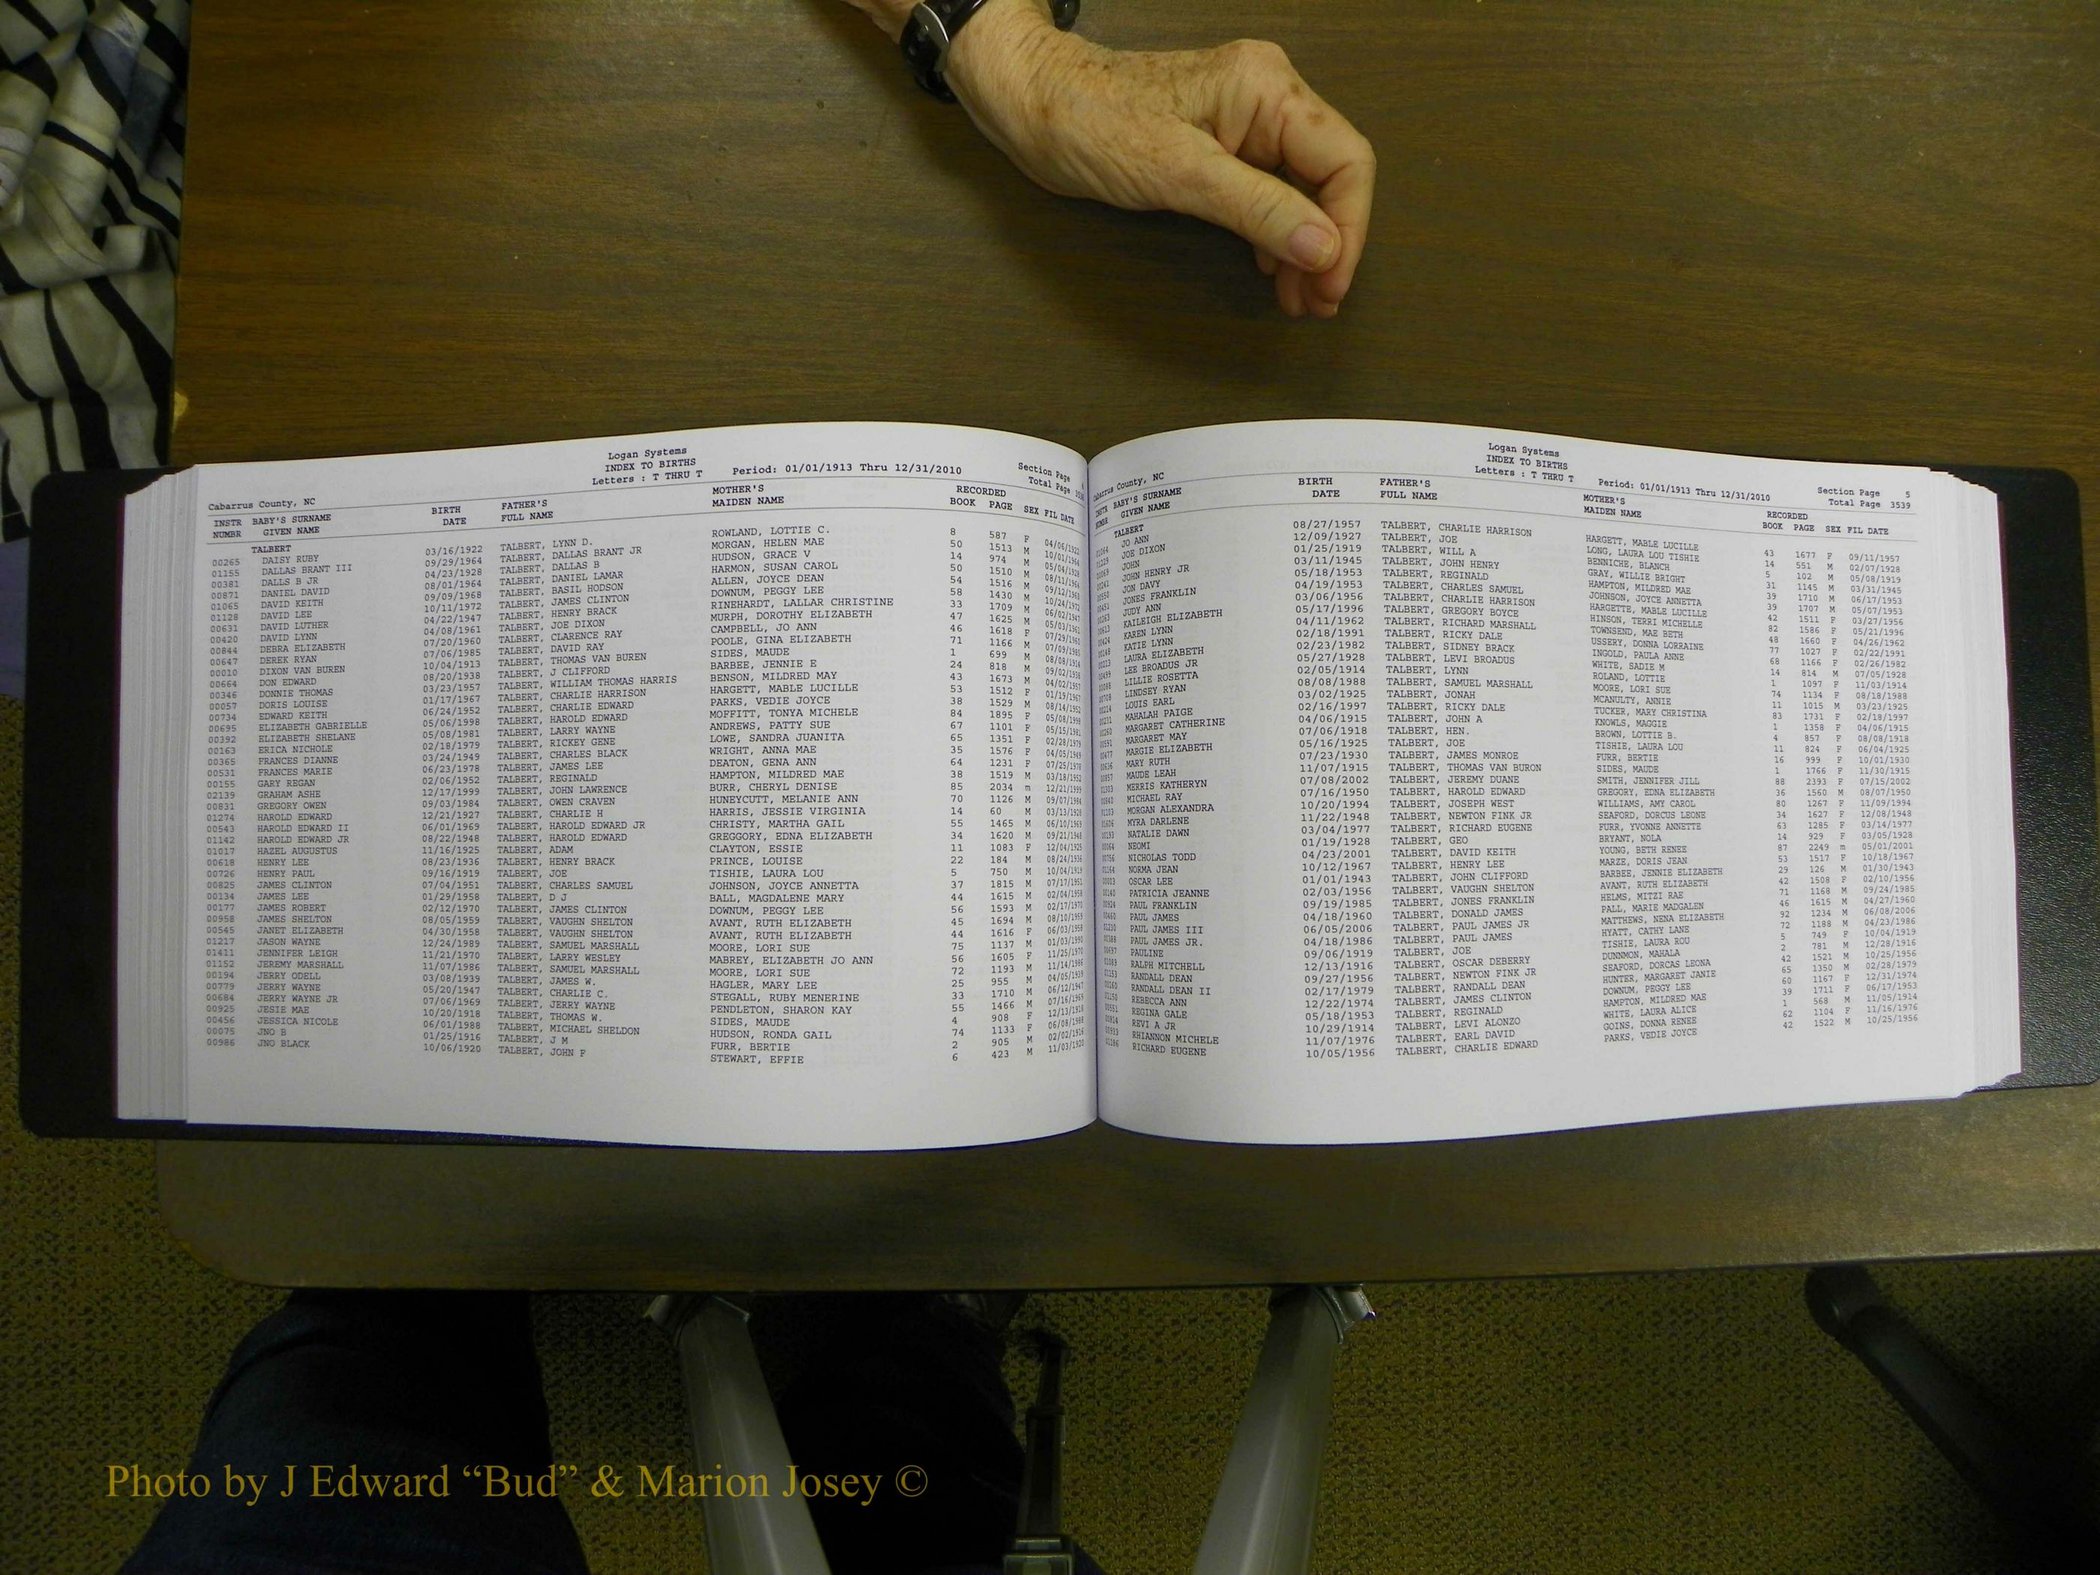 Logan Systems
INDEX TO BIRTHS
Letters : T THRU T Period: 01/01/1913 Thru 12/31/2010
Section Page
Total Page
Cabarrus County, NC
INSTR BABY'S SURNAME BIRTH FATHER'S MOTHER'S RECORDED
NUMBR GIVEN NAME DATE FULL NAME MAIDEN NAME BOOK PAGE SEX FIL DATE
TALBERT
00265 DAISY RUBY 03/16/1922 TALBERT, LYNN D. ROWLAND, LOTTIE C. 8 587 F 04/06/1922
01155 DALLAS BRANT III 09/29/1964 TALBERT, DALLAS BRANT JR MORGAN, HELEN MAE 50 1513 M 10/01/1964
00381 DALLS B JR 04/23/1928 TALBERT, DALLAS B HUDSON, GRACE V 14 974 M 05/04/1928
00871 DANIEL DAVID 08/01/1964 TALBERT, DANIEL LAMAR HARMON, SUSAN CAROL 50 1510 M 08/11/1964
01065 DAVID KEITH 09/09/1968 TALBERT, BASIL HODSON ALLEN, JOYCE DEAN 54 1516 M 09/12/1968
01128 DAVID LEE 10/11/1972 TALBERT, JAMES CLINTON DOWNUM, PEGGY LEE 58 1430 M 10/24/1972
00631 DAVID LUTHER 04/22/1947 TALBERT, HENRY BRACK RINEHARDT, LALLAR CHRISTINE 33 1709 M 06/02/1947
00420 DAVID LYNN 04/08/1961 TALBERT, JOE DIXON MURPH, DOROTHY ELIZABETH 47 1625 M 05/03/1961
00844 DEBRA ELIZABETH 07/20/1960 TALBERT, CLARENCE RAY CAMPBELL, JO ANN 46 1618 F 07/29/1960
00647 DEREK RYAN 07/06/1985 TALBERT, DAVID RAY POOLE, GINA ELIZABETH 71 1166 M 07/09/1985
00010 DIXON VAN BUREN 10/04/1913 TALBERT, THOMAS VAN BUREN SIDES, MAUDE 1 699 M 08/08/1914
00664 DON EDWARD 08/20/1938 TALBERT, J CLIFFORD BARBEE, JENNIE E 24 818 M 09/02/1938
00346 DONNIE THOMAS 03/23/1957 TALBERT, WILLIAM THOMAS HARRIS BENSON, MILDRED MAY 43 1673 M
00057 DORIS LOUISE 01/17/1967 TALBERT, CHARLIE HARRISON HARGETT, MABLE LUCILLE 53 1512 F 01/19/1967
00734 EDWARD KEITH 06/24/1952 TALBERT, CHARLIE EDWARD PARKS, VEDIE JOYCE 38 1529 M 08/14/1952
00695 ELIZABETH GABRIELLE 05/06/1998 TALBERT, HAROLD EDWARD MOFFITT, TONYA MICHELE 84 1895 F 05/08/1998
00392 ELIZABETH SHELANE 05/08/1981 TALBERT, LARRY WAYNE ANDREWS, PATTY SUE 67 1101 F 05/15/1981
00163 ERICA NICHOLE 02/18/1979 TALBERT, RICKEY GENE LOWE, SANDRA JUANITA 65 1351 F 02/28/1979
00365 FRANCES DIANNE 03/24/1949 TALBERT, CHARLES BLACK WRIGHT, ANNA MAE 35 1576 F 04/05/1949
00531 FRANCES MARIE 06/23/1978 TALBERT, JAMES LEE DEATON, GENA ANN 64 1231 F 07/25/1978
00155 GARY REGAN 02/06/1952 TALBERT, REGINALD HAMPTON, MILDRED MAE 38 1519 M 03/18/1952
02139 GRAHAM ASHE 12/17/1999 TALBERT, JOHN LAWRENCE BURR, CHERYL DENISE 85 2034 m 12/21/1999
00831 GREGORY OWEN 09/03/1984 TALBERT, OWEN CRAVEN HUNEYCUTT, MELANIE ANN 70 1126 M 09/07/1984
01274 HAROLD EDWARD 12/21/1927 TALBERT, CHARLIE H HARRIS, JESSIE VIRGINIA 14 60 M 03/13/1928
00543 HAROLD EDWARD II 06/01/1969 TALBERT, HAROLD EDWARD JR CHRISTY, MARTHA GAIL 55 1465 M 06/10/1969
01142 HAROLD EDWARD JR 08/22/1948 TALBERT, HAROLD EDWARD GREGGORY, EDNA ELIZABETH 34 1620 M 09/21/1948
01017 HAZEL AUGUSTUS 11/16/1925 TALBERT, ADAM CLAYTON, ESSIE 11 1083 F 12/04/1925
00618 HENRY LEE 08/23/1936 TALBERT, HENRY BRACK PRINCE, LOUISE 22 184 M 08/24/1936
00726 HENRY PAUL 09/16/1919 TALBERT, JOE TISHIE, LAURA LOU 5 750 M 10/04/1919
00825 JAMES CLINTON 07/04/1951 TALBERT, CHARLES SAMUEL JOHNSON, JOYCE ANNETTA 37 1815 M 07/17/1951
00134 JAMES LEE 01/29/1958 TALBERT, D J BALL, MAGDALENE MARY 44 1615 M 02/04/1958
00177 JAMES ROBERT 02/12/1970 TALBERT, JAMES CLINTON DOWNUM, PEGGY LEE 56 1593 M 02/17/1970
00958 JAMES SHELTON 08/05/1959 TALBERT, VAUGHN SHELTON AVANT, RUTH ELIZABETH 45 1694 M 08/10/1959
00545 JANET ELIZABETH 04/30/1958 TALBERT, VAUGHN SHELTON AVANT, RUTH ELIZABETH 44 1616 F 06/03/1958
01217 JASON WAYNE 12/24/1989 TALBERT, SAMUEL MARSHALL MOORE, LORI SUE 75 1137 M 01/03/1990
01411 JENNIFER LEIGH 11/21/1970 TALBERT, LARRY WESLEY MABREY, ELIZABETH JO ANN 56 1605 F 11/25/1970
01152 JEREMY MARSHALL 11/07/1986 TALBERT, SAMUEL MARSHALL MOORE, LORI SUE 72 1193 M 11/14/1986
00194 JERRY ODELL 03/08/1939 TALBERT, JAMES W. HAGLER, MARY LEE 25 955 M 04/05/1939
00779 JERRY WAYNE 05/20/1947 TALBERT, CHARLIE C. STEGALL, RUBY MENERINE 33 1710 M 06/12/1947
00684 JERRY WAYNE JR 07/06/1969 TALBERT, JERRY WAYNE PENDLETON, SHARON KAY 55 1466 M 07/16/1969
00925 JESIE MAE 10/20/1918 TALBERT, THOMAS W. SIDES, MAUDE 4 908 F 12/13/1918
00456 JESSICA NICOLE 06/01/1988 TALBERT, MICHAEL SHELDON HUDSON, RONDA GAIL 74 1133 F 06/08/1988
00075 JNO B 01/25/1916 TALBERT, J M FURR, BERTIE 2 905 M 02/02/1916
00986 JNO BLACK 10/06/1920 TALBERT, JOHN F STEWART, EFFIE 6 423 M 11/03/1920
Logan Systems
INDEX TO BIRTHS
Letters : T THRU T Period: 01/01/1913 Thru 12/31/2010
Section Page 5
Total Page 3539
Cabarrus County, NC
INSTR BABY'S SURNAME BIRTH FATHER'S MOTHER'S RECORDED
NUMBR GIVEN NAME DATE FULL NAME MAIDEN NAME BOOK PAGE SEX FIL DATE
TALBERT
JO ANN 08/27/1957 TALBERT, CHARLIE HARRISON HARGETT, MABLE LUCILLE 43 1677 F 09/11/1957
JOE DIXON 12/09/1927 TALBERT, JOE LONG, LAURA LOU TISHIE 14 551 M 02/07/1928
JOHN 01/25/1919 TALBERT, WILL A BENNICHE, BLANCH 5 102 M 05/08/1919
JOHN HENRY JR 03/11/1945 TALBERT, JOHN HENRY GRAY, WILLIE BRIGHT 31 1145 M 03/31/1945
JON DAVY 05/18/1953 TALBERT, REGINALD HAMPTON, MILDRED MAE 39 1710 M 06/17/1953
JONES FRANKLIN 04/19/1953 TALBERT, CHARLES SAMUEL JOHNSON, JOYCE ANNETTA 39 1707 M 05/07/1953
JUDY ANN 03/06/1956 TALBERT, CHARLIE HARRISON HARGETTE, MABLE LUCILLE 42 1511 F 03/27/1956
KAILEIGH ELIZABETH 05/17/1996 TALBERT, GREGORY BOYCE HINSON, TERRI MICHELLE 82 1586 F 05/21/1996
KAREN LYNN 04/11/1962 TALBERT, RICHARD MARSHALL TOWNSEND, MAE BETH 48 1660 F 04/26/1962
KATIE LYNN 02/18/1991 TALBERT, RICKY DALE USSERY, DONNA LORRAINE 77 1027 F 02/22/1991
LAURA ELIZABETH 02/23/1982 TALBERT, SIDNEY BRACK INGOLD, PAULA ANNE 68 1166 F 02/26/1982
LEE BROADUS JR 05/27/1928 TALBERT, LEVI BROADUS WHITE, SADIE M 14 814 M 07/05/1928
LILLIE ROSETTA 02/05/1914 TALBERT, LYNN ROLAND, LOTTIE 1 1097 F 11/03/1914
LINDSEY RYAN 08/08/1988 TALBERT, SAMUEL MARSHALL MOORE, LORI SUE 74 1134 F 08/18/1988
LOUIS EARL 03/02/1925 TALBERT, JONAH MCANULTY, ANNIE 11 1015 M 03/23/1925
MAHALAH PAIGE 02/16/1997 TALBERT, RICKY DALE TUCKER, MARY CHRISTINA 83 1731 F 02/18/1997
MARGARET CATHERINE 04/06/1915 TALBERT, JOHN A KNOWLS, MAGGIE 1 1358 F 04/06/1915
MARGARET MAY 07/06/1918 TALBERT, HEN. BROWN, LOTTIE B. 4 857 F 08/08/1918
MARGIE ELIZABETH 05/16/1925 TALBERT, JOE TISHIE, LAURA LOU 11 824 F 06/04/1925
MARY RUTH 07/23/1930 TALBERT, JAMES MONROE FURR, BERTIE 16 999 F 10/01/1930
MAUDE LEAH 11/07/1915 TALBERT, THOMAS VAN BURON SIDES, MAUDE 1 1766 F 11/30/1915
MERRIS KATHERYN 07/08/2002 TALBERT, JEREMY DUANE SMITH, JENNIFER JILL 88 2393 F 07/15/2002
MICHAEL RAY 07/16/1950 TALBERT, HAROLD EDWARD GREGORY, EDNA ELIZABETH 36 1560 M 08/07/1950
MORGAN ALEXANDRA 10/20/1994 TALBERT, JOSEPH WEST WILLIAMS, AMY CAROL 80 1267 F 11/09/1994
MYRA DARLENE 11/22/1948 TALBERT, NEWTON FINK JR SEAFORD, DORCUS LEONE 34 1627 F 12/08/1948
NATALIE DAWN 03/04/1977 TALBERT, RICHARD EUGENE FURR, YVONNE ANNETTE 63 1285 F 03/14/1977
NEOMI 01/19/1928 TALBERT, GEO BRYANT, NOLA 14 929 F 03/05/1928
NICHOLAS TODD 04/23/2001 TALBERT, DAVID KEITH YOUNG, BETH RENEE 87 2249 m 05/01/2001
NORMA JEAN 10/12/1967 TALBERT, HENRY LEE MARZE, DORIS JEAN 53 1517 F 10/18/1967
OSCAR LEE 01/01/1943 TALBERT, JOHN CLIFFORD BARBEE, JENNIE ELIZABETH 29 126 M 01/30/1943
PATRICIA JEANNE 02/03/1956 TALBERT, VAUGHN SHELTON AVANT, RUTH ELIZABETH 42 1508 F 02/10/1956
PAUL FRANKLIN 09/19/1985 TALBERT, JONES FRANKLIN HELMS, MITZI RAE 71 1168 M 09/24/1985
PAUL JAMES 04/18/1960 TALBERT, DONALD JAMES PALL, MARIE MADGALEN 46 1615 M 04/27/1960
PAUL JAMES III 06/05/2006 TALBERT, PAUL JAMES JR MATTHEWS, NENA ELIZABETH 92 1234 M 06/08/2006
PAUL JAMES JR. 04/18/1986 TALBERT, PAUL JAMES HYATT, CATHY LANE 72 1188 M 04/23/1986
PAULINE 09/06/1919 TALBERT, JOE TISHIE, LAURA ROU 5 749 F 10/04/1919
RALPH MITCHELL 12/13/1916 TALBERT, OSCAR DEBERRY DUNNMON, MAHALA 2 781 M 12/28/1916
RANDALL DEAN 09/27/1956 TALBERT, NEWTON FINK JR SEAFORD, DORCAS LEONA 42 1521 M 10/25/1956
RANDALL DEAN II 02/17/1979 TALBERT, RANDALL DEAN HUNTER, MARGARET JANIE 65 1350 M 02/28/1979
REBECCA ANN 12/22/1974 TALBERT, JAMES CLINTON DOWNUM, PEGGY LEE 60 1167 F 12/31/1974
REGINA GALE 05/18/1953 TALBERT, REGINALD HAMPTON, MILDRED MAE 39 1711 F 06/17/1953
REVI A JR 10/29/1914 TALBERT, LEVI ALONZO WHITE, LAURA ALICE 1 568 M 11/05/1914
RHIANNON MICHELE 11/07/1976 TALBERT, EARL DAVID GOINS, DONNA RENEE 62 1104 F 11/16/1976
RICHARD EUGENE 10/05/1956 TALBERT, CHARLIE EDWARD PARKS, VEDIE JOYCE 42 1522 M 10/25/1956
Photo by J Edward “Bud” & Marion Josey ©